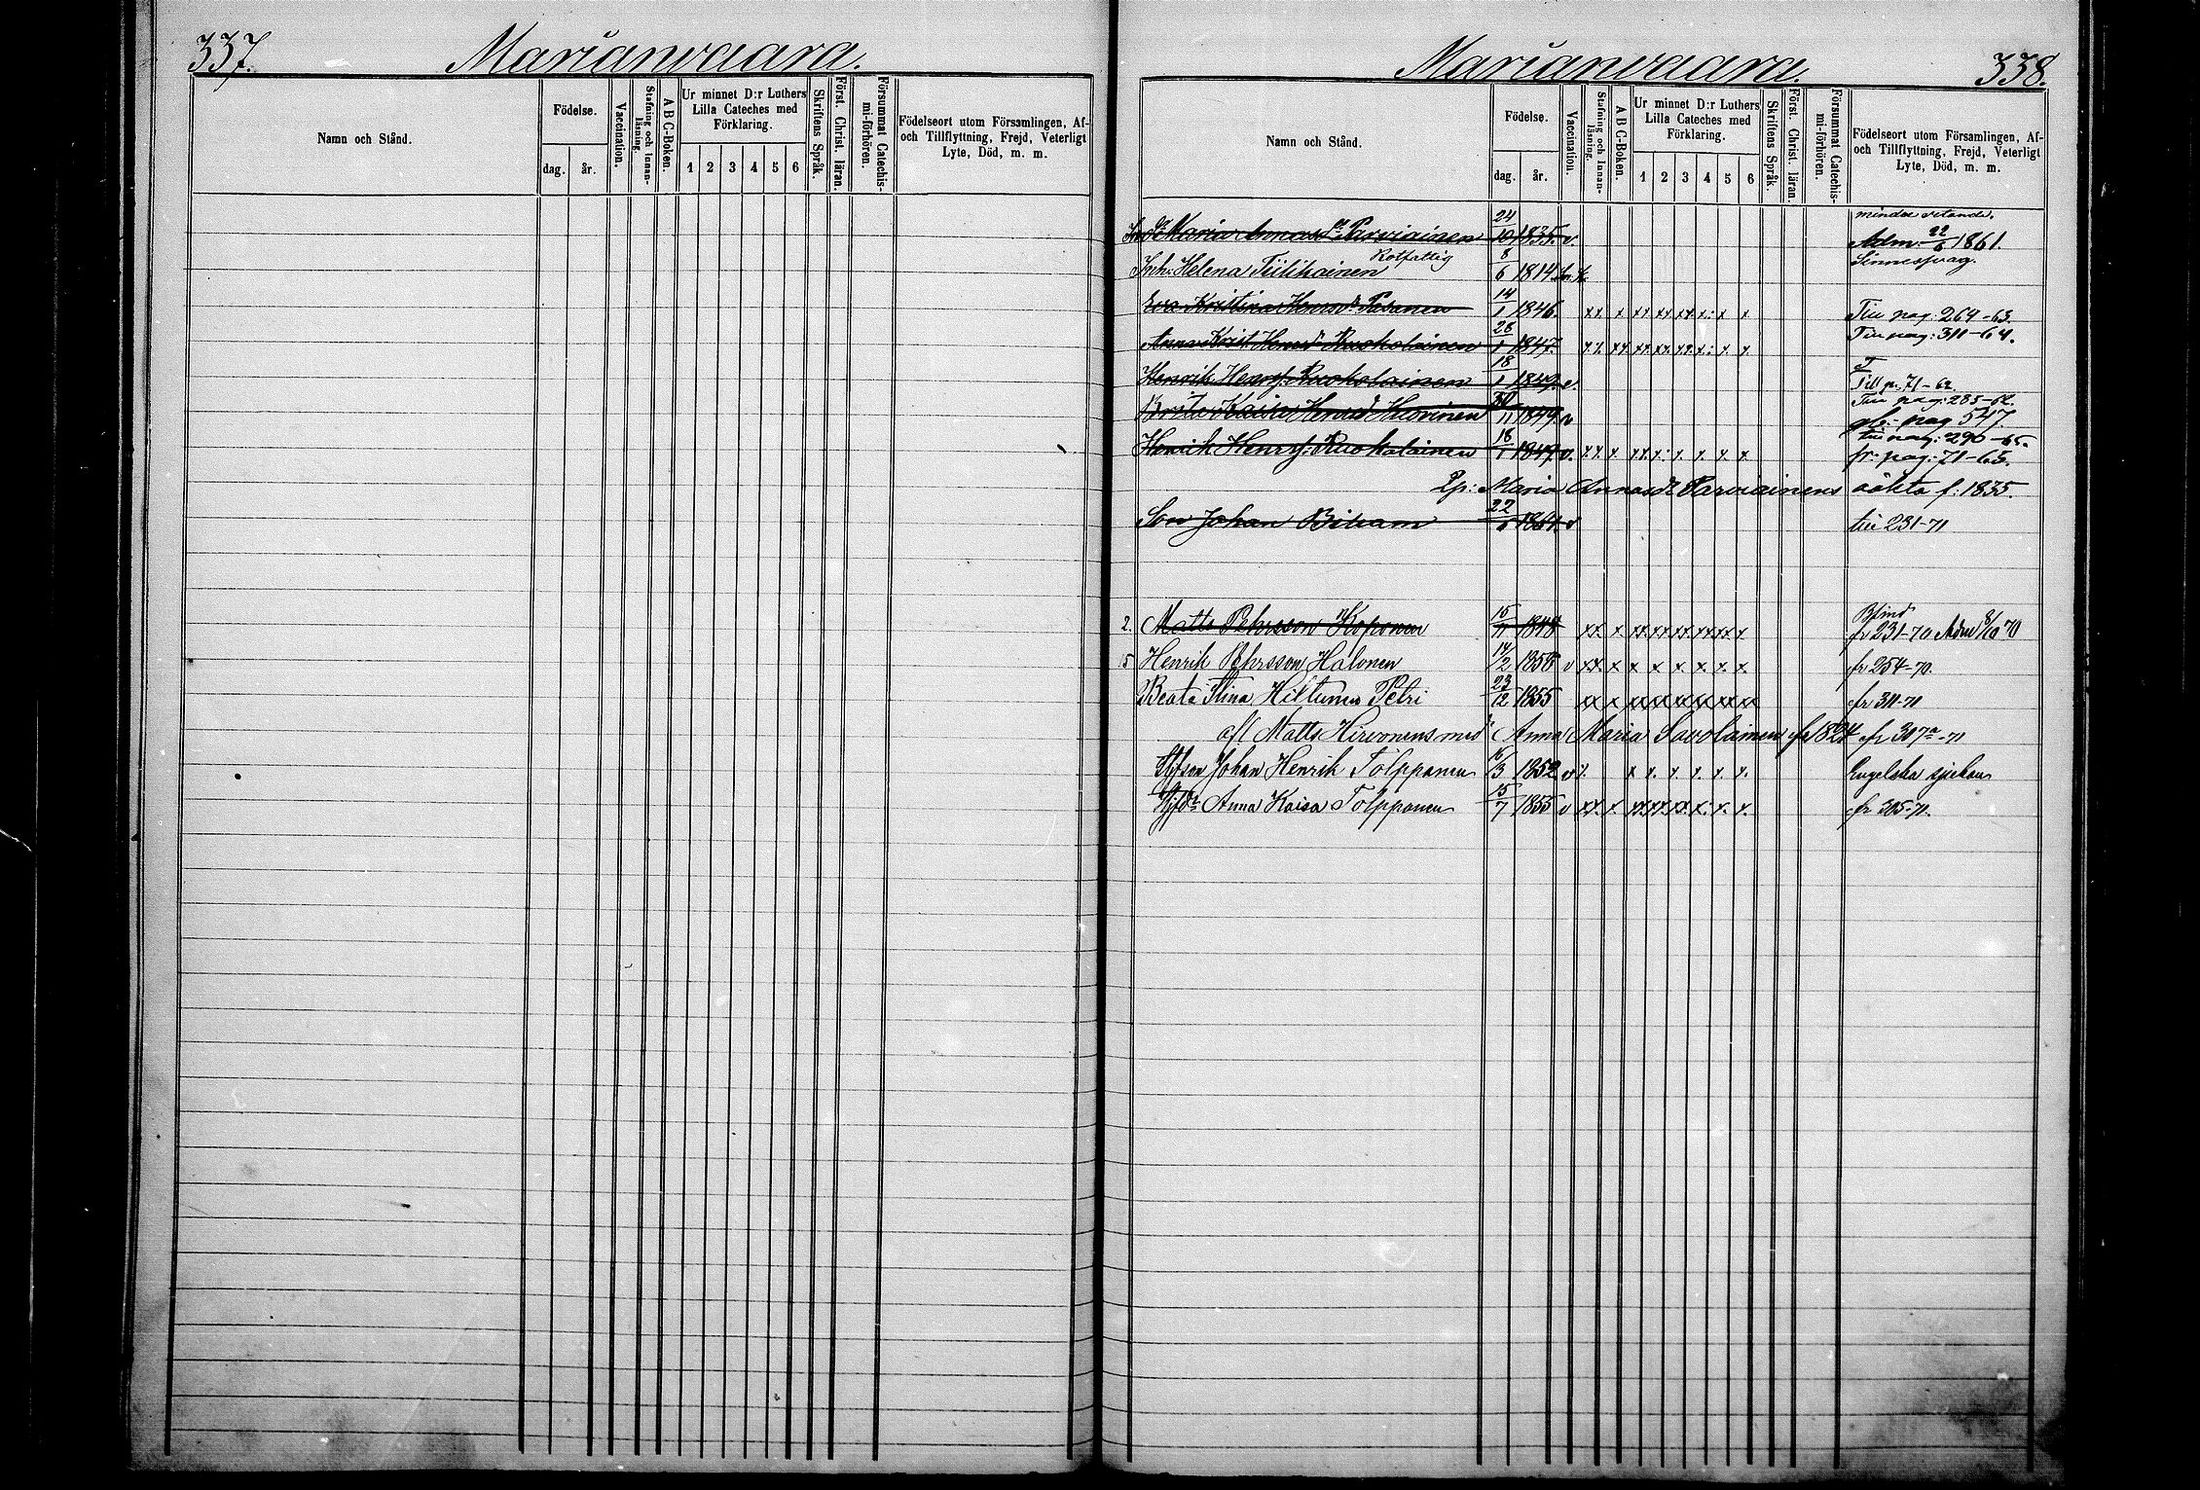 337.
Marianvaara.
Namn och Stånd.
Födelse.
dag.
år.
Vaccination.
Stafning och Innan-
läsning.
A B C-Boken.
Ur minnet D:r Luthers
Lilla Cateches med
Förklaring.
1 2 3 4 5 6
Skriftens Språk.
Först. Christ. läran.
Försummat Catechis-
mi-förhören.
Födelseort utom Församlingen, Af-
och Tillflyttning, Frejd, Veterligt
Lyte, Död, m. m.
Marianvaara.
338.
Namn och Stånd.
Födelse.
dag.
år.
Vaccination.
Stafning och Innan-
läsning.
A B C-Boken.
Ur minnet D:r Luthers
Lilla Cateches med
Förklaring.
1 2 3 4 5 6
Skriftens Språk.
Först. Christ. läran.
Försummat Catechis-
mi-förhören.
Födelseort utom Församlingen, Af-
och Tillflyttning, Frejd, Veterligt
Lyte, Död, m. m.
mindre vetande.
Maria Annasdr Parviainen 24/10 1835. v. Adm. 22/6 1861.
Rotfattig
Inh. Helena Tiilikainen 8/6 1814 Sinnessvag.
Eva Kristina Henrsdr Pasanen 14/1 1846. xx x xx xx xx x: x x Till pag. 264-63.
Anna Krist Henrsdr Ruokolainen 28/1 1847. xx xx xx xx xx x: x x Till pag: 311-64.
Henrik Henrss. Ruokolainen 18/1 1849. v. Till p. 71-62
Till pag: 283-62.
Brita Kaisa Henrsdr Hirvinen 30/11 1849. v pag 547.
till pag: 290-65.
Henrik Henrss: Ruokolainen 18/1 1849 v. xx x xx x: x x x x fr: pag: 71-65.
Lp: Maria Annasdr Parviainens oäkta f: 1835.
Son Johan Beham 22 1861. v till 231-71
Blind
2. Matts Pehrsson Koponen 15/11 1848 xx x xx xx xx xx xx x fr 231-70 Adm 9/10 70
5 Henrik Pehrsson Halonen 14/2 1856 v xx x x x x x x x fr 254-70.
Beata Stina Hiltunen Petri 23/12 1855 xx x xx xx xx xx xx xx fr 311-71
afl Matts Hirvonens med Anna Maria Savolainen f 1824 fr 307a-71
Styfson Johan Henrik Tolppanen 6/3 1852 v x x x x x x x Engelska sjukan
Styfdr Anna Kaisa Tolppanen 15/7 1855 v xx x xx xx xx x: x. x. fr 305-71.